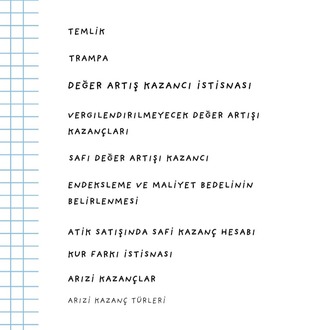 TEMLİK
TRAMPA
DEĞER ARTIŞ KAZANCI İSTİSNASI
VERGILENDIRILMEYECEK DEĞER ARTIŞI
KAZANÇLARI
SAFI DEĞER ARTIŞI KAZANCI
ENDEKSLEME VE MALİYET BEDELİNİN
BELİRLENMESİ
ATIK SATIŞINDA SAFİ KAZANÇ HESABI
KUR FARKI İSTİSNASI
ARIZİ KAZANÇLAR
ARIZİ KAZANÇ TÜRLERİ